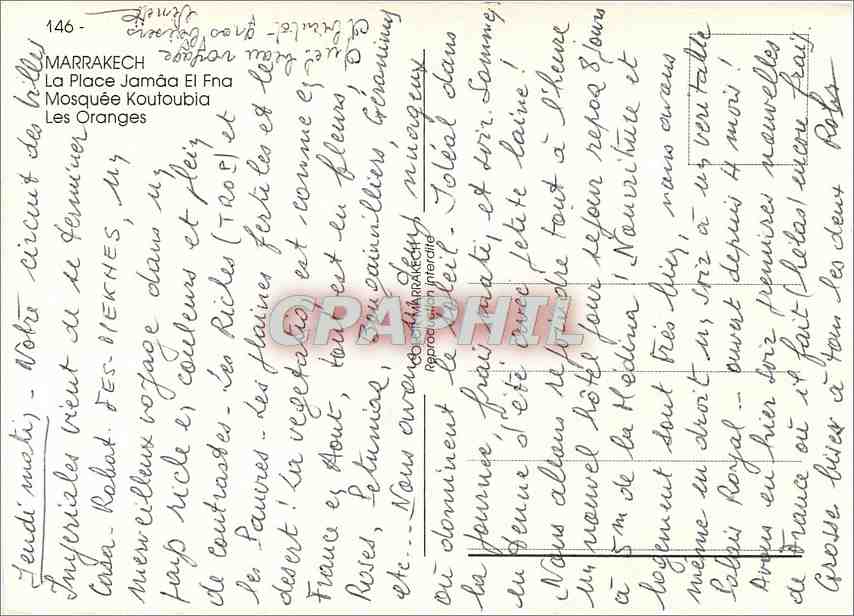 146 -
MARRAKECH
La Place Jamâa El Fna
Mosquée Koutoubia
Les Oranges
COLOR MARRAKECH
Reproduction interdite
CPAPHIL
Jeudi matin, - Notre circuit des Villes
Imperiales vient de se terminer
Casa - Rabat - FES - MEKNES, un
merveilleux voyage dans un
pays riche en couleurs et plein
de contrastes - Les Riches (TROP) et
les Pauvres - Les plaines fertiles et le
desert ! La vegetation est comme en
France en Aout, tout est en fleurs
Roses, Petunias, Bougainvilliers, Géraniums
etc... Nous avons un temps nuageux
où dominent le soleil - Idéal dans
la journée, frais matin et soir. Sommes
en tenue d'été avec petite laine !
Nous allons rejoindre tout à l'heure
un nouvel hôtel pour séjour repos 8 jours
à 5 m de la Médina ! Nourriture et
logement sont très bien, nous avons
même eu droit un soir à un veritable
Palais Royal - ouvert depuis 4 mois !
Avons eu hier soir premières nouvelles
de France où il fait (hélas) encore frais.
Grosses bises à tous les deux
Quel beau voyage
A bientôt - gros baisers